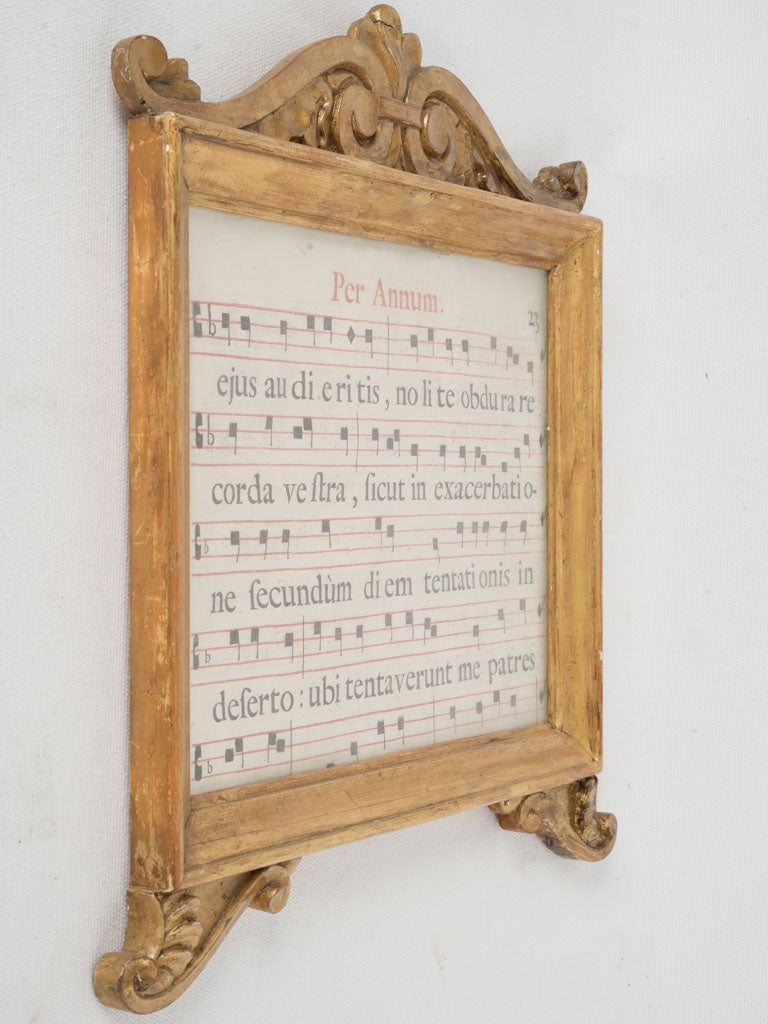 Per Annum.
23
ejus au di e ri tis, no li te obdu ra re
corda ve ſtra, ſicut in exacerbati o-
ne ſecundùm di em tentati onis in
deſerto: ubi tentaverunt me patres